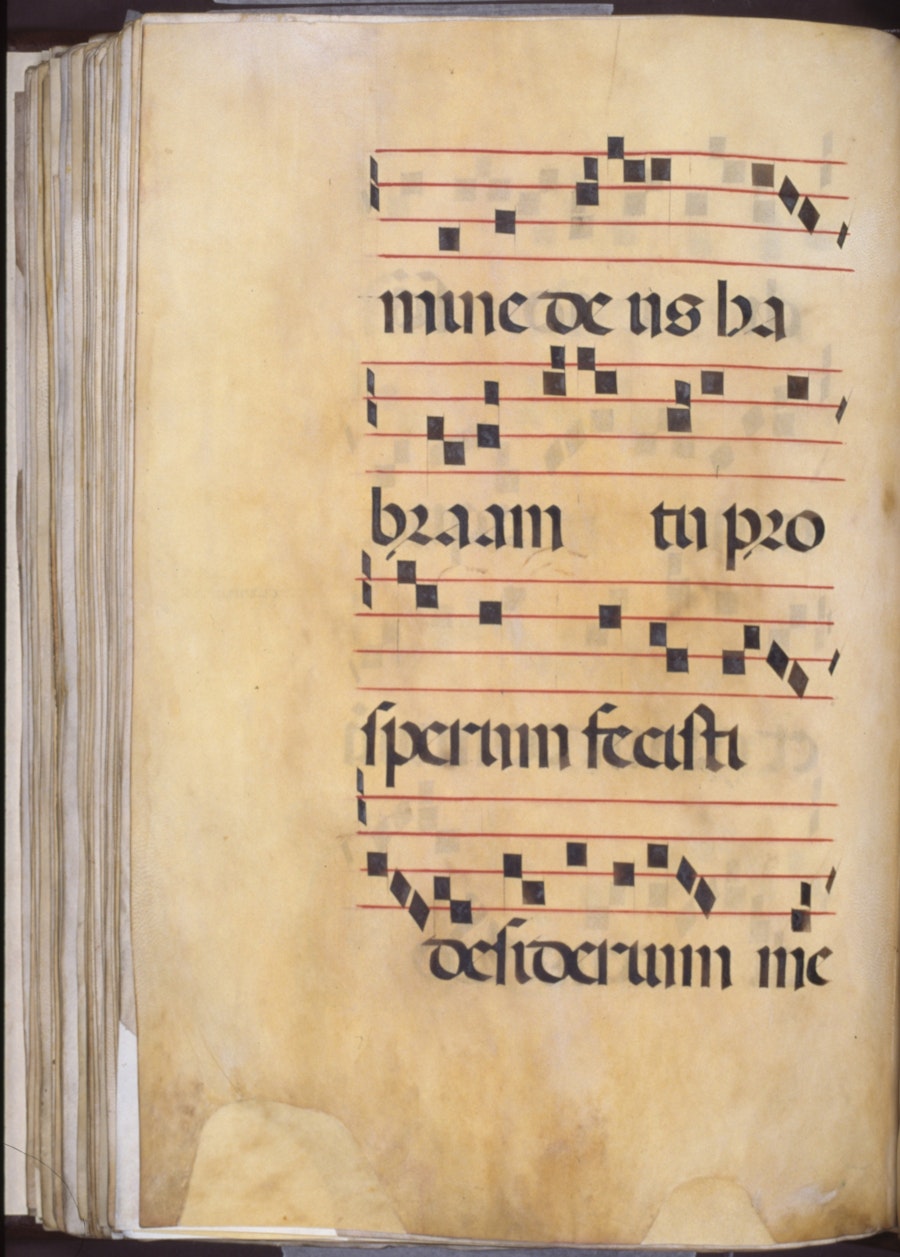 mine de us ha
braam tu pro
sperum fecisti
desiderium me